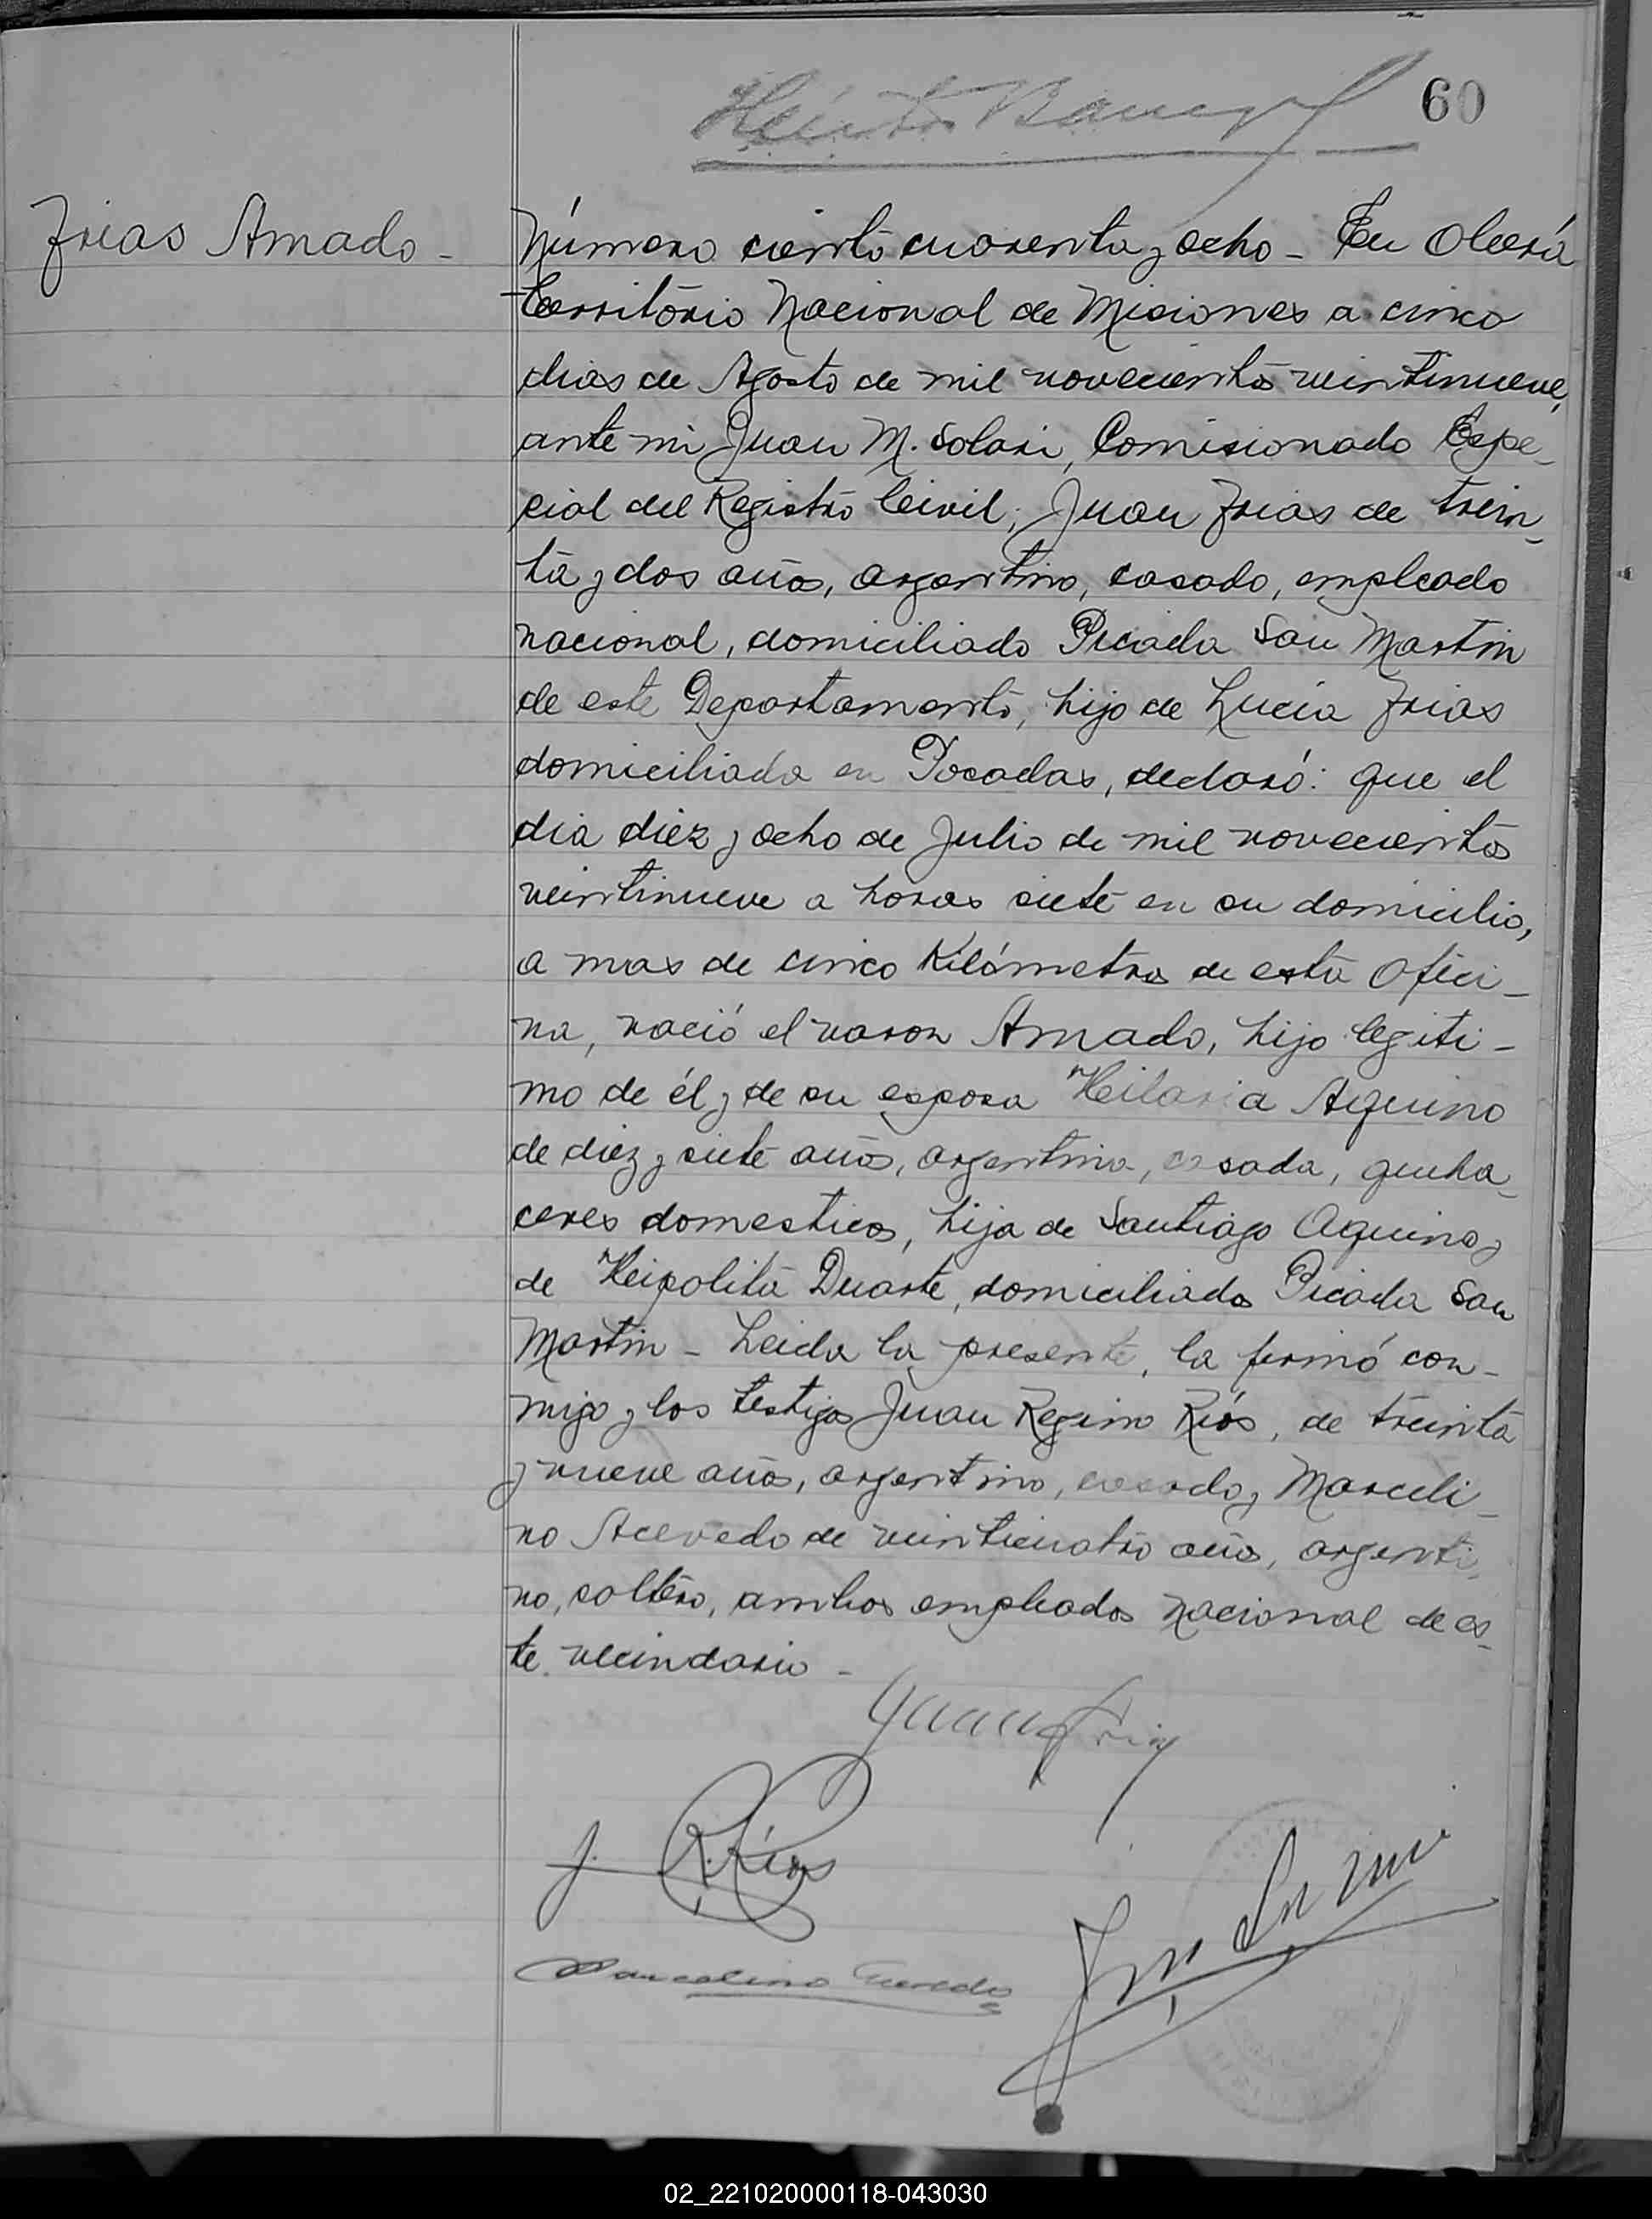 60
Frias Amado -
Número ciento cuarenta y ocho - En Oberá
Territorio Nacional de Misiones a cinco
dias de Agosto de mil novecientos veintinueve,
ante mi Juan M. Solari, Comisionado Espe-
cial del Registro Civil, Juan Frias de trein-
ta y dos años, argentino, casado, empleado
nacional, domiciliado Picada San Martin
de este Departamento, hijo de Lucia Frias
domiciliada en Posadas, declaró: que el
dia diez y ocho de Julio de mil novecientos
veintinueve a horas siete en su domicilio,
a mas de cinco Kilómetros de esta Ofici-
na, nació el varon Amado, hijo legiti-
mo de él y de su esposa Hilaria Aquino
de diez y siete años, argentina, casada, queha-
ceres domesticos, hija de Santiago Aquino y
de Heipolita Duarte, domiciliados Picada San
Martin - Leida la presente, la firmó con-
migo y los testigos Juan Regino Ríos, de treinta
y nueve años, argentino, casado y Marceli-
no Acevedo de veinticuatro años, argenti-
no, soltero, ambos empleados nacional de es-
te vecindario -
Juan Frias
J. R. Ríos
Marcelino Acevedo
02_221020000118-043030